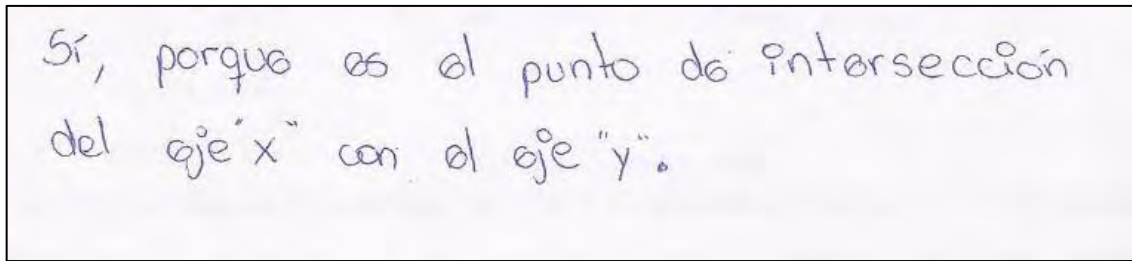 Sí, porque es el punto de intersección
del eje "x" con el eje "y".